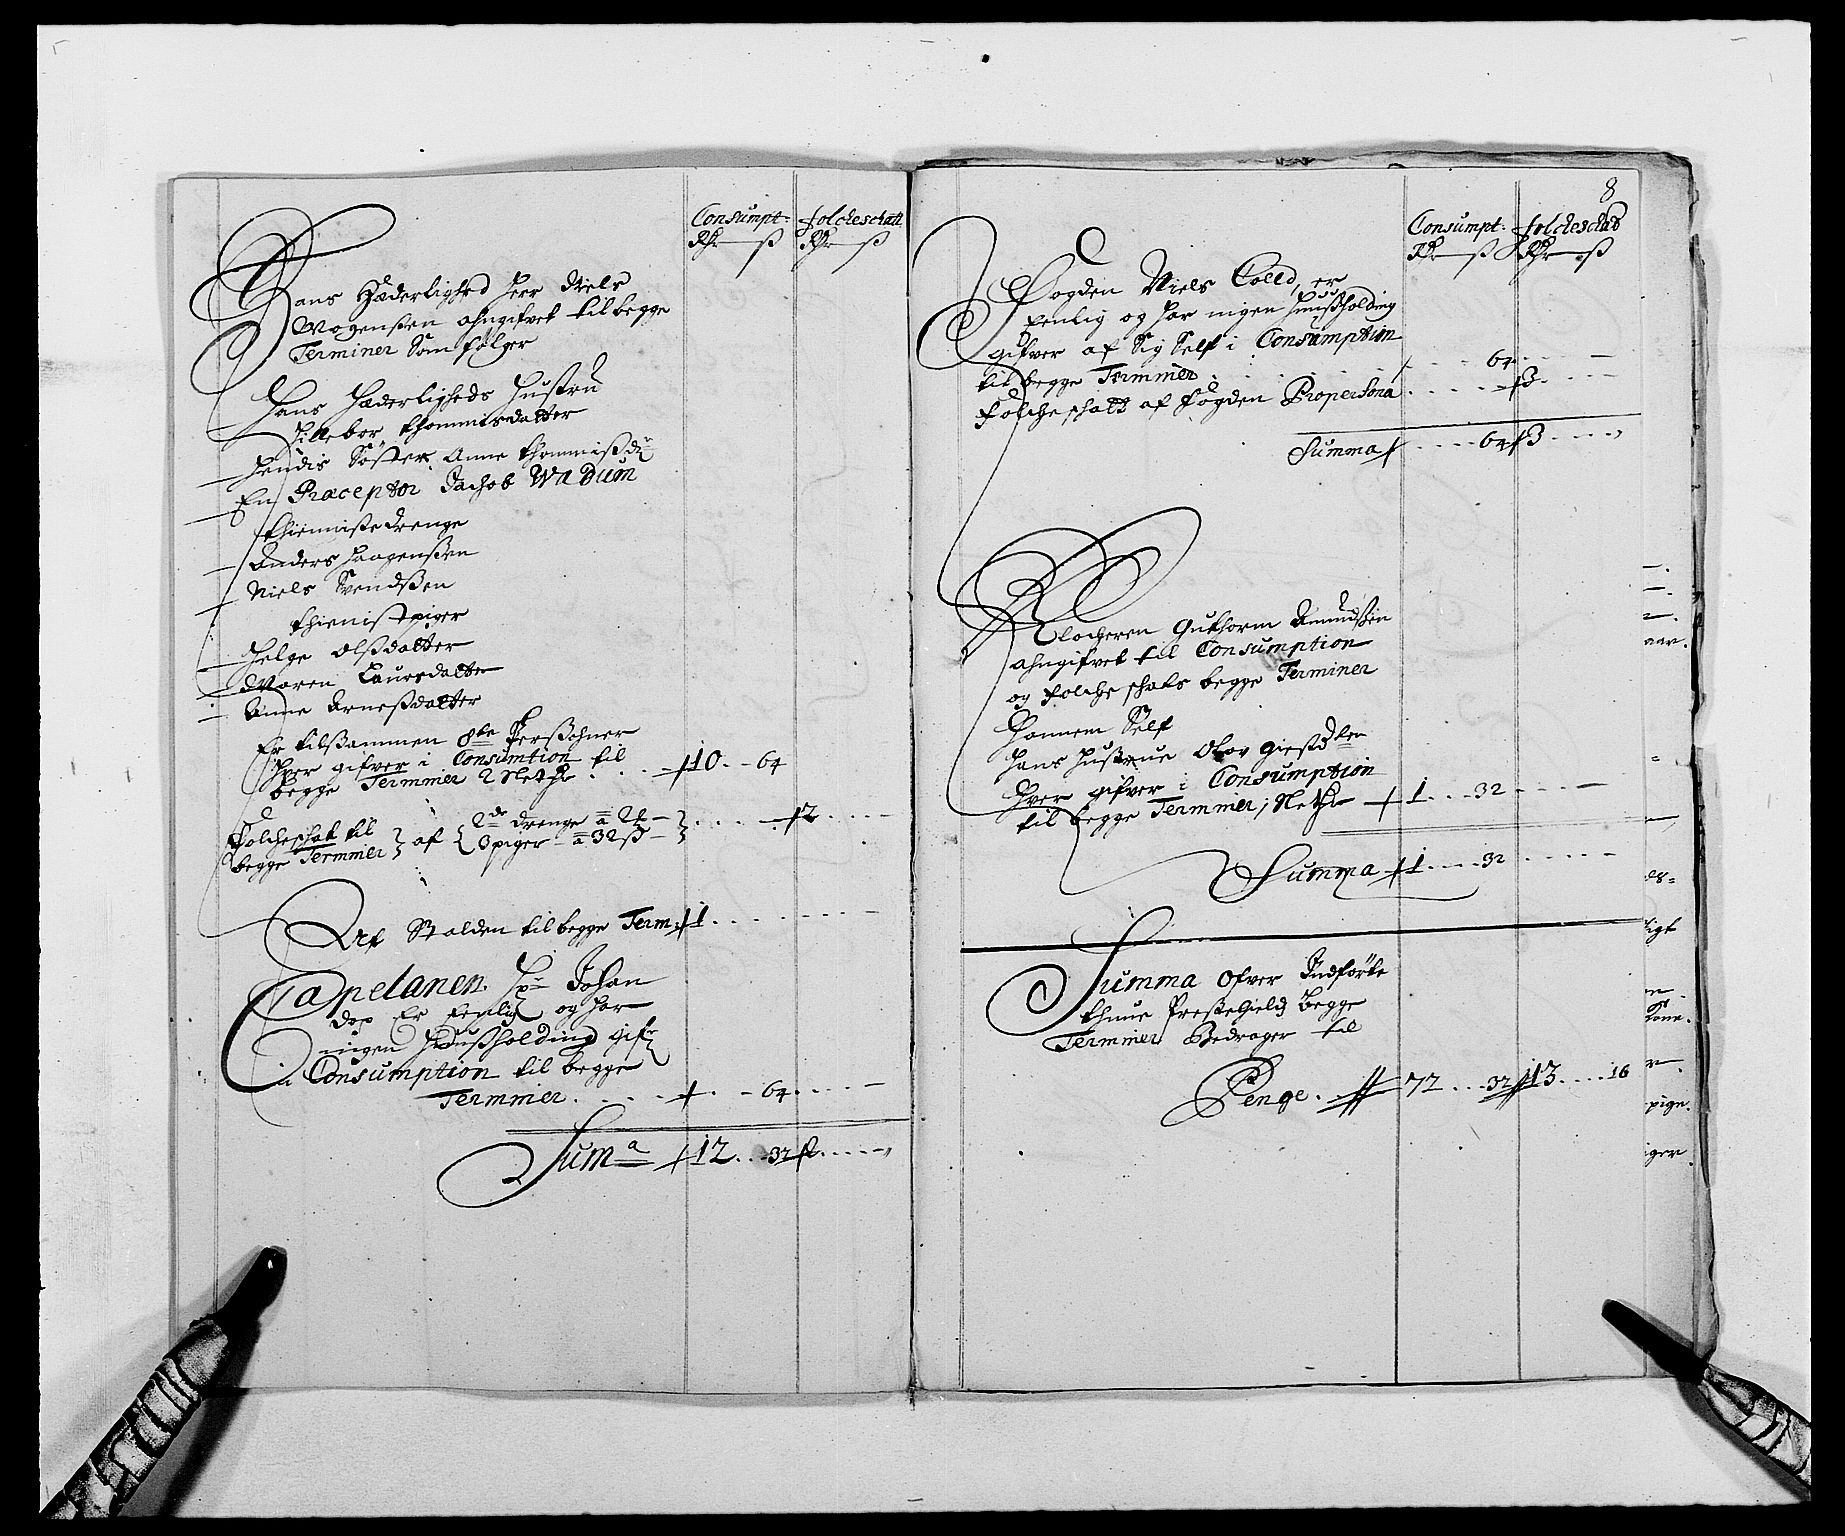 Consumpt: folcheschatt
Rdr ß Rdr ß
Hans Hæderlighed Herr Niels
Mogenßen ahngifvet til begge
Terminer Som følger
Hans Hæderligheds Hustru
Hillebor Thommisdatter
hendis Søster Anne Thommißdr
En Præceptor Jachob WaDum
thienniste drenge
Anders Haagenßen
Niels Svendßen
thienist piger
Helge Olßdatter
Maren Laursdatter
Anne Arneßdatter
Er tilßammen 8te Perßohner
Hver gifver i Consumtion til
begge Terminer 2 Netdr . . . . 10 . . 64
Folcheschat til
begge Terminer af 2de drenge a 2
3 piger a 32 ß . . . . . 2 . . . .
Af Stalden til begge Term: 1 . . . . . .
Capelanen Hr Johan
dop Er Eenlig og har
ingen Huußholding gifr
i Consumption til begge
Terminer . . . . . . 64 . . . .
Suma 12 . . . 32 2 . . . . .
8
Consumpt: folcheschatt
Rdr ß Rdr ß
Fogden Niels Colld, er
Eenlig og har ingen Huußholding
gifver af Sig Self i Consumption
til begge Terminer . . . . . . 64 . . .
Folcheschatt af Fogden Propersona . . . . . 3 . . . .
Summa . . . . 64 3 . . . .
Klocheren Guthorm Amundßen
ahngifvet til Consumption
og Folche schats begge Terminer
Hannem Self
Hans Hustrue Olov gießdten
Hver gifver i Consumption
til begge Terminer, Netdr 1 . . . 32 . . . . .
Summa 1 . . . . 32 . . . . .
Summa Ofver Indførte
thuue Preste Gield Begge
Terminer Bedrager til
Penge . 72 . . . 32 13 . . . . 16